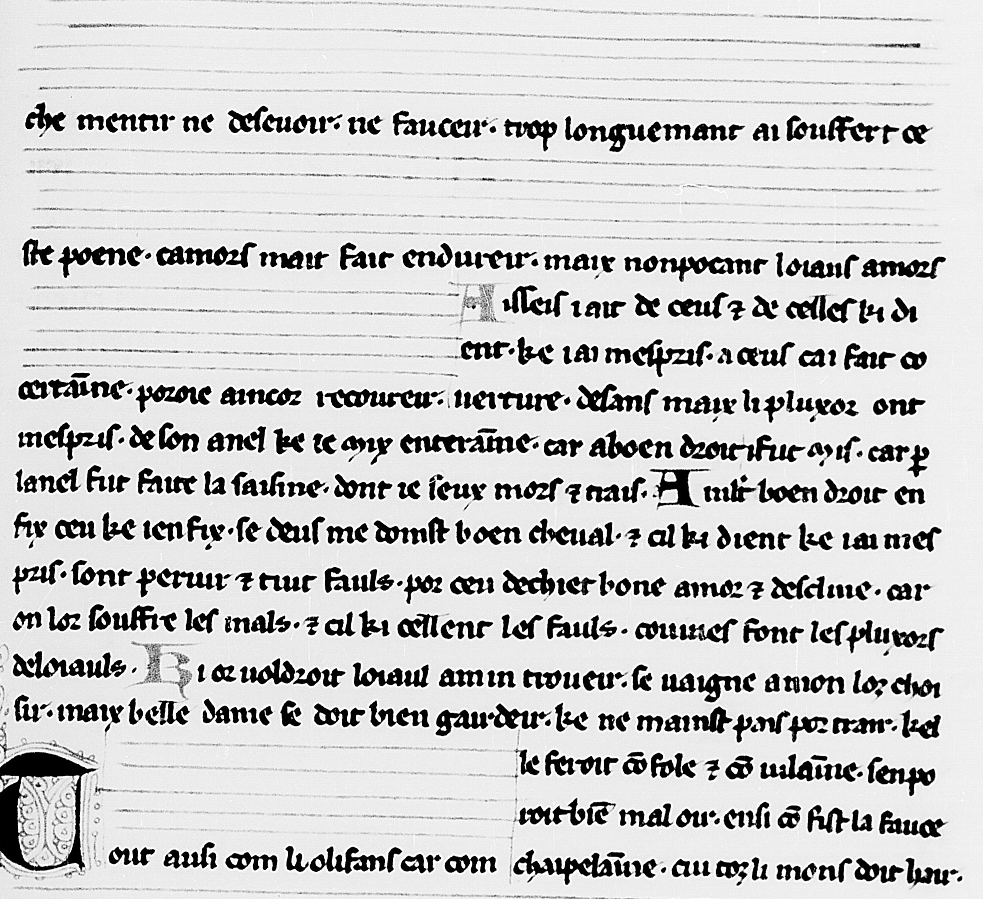 che mentir ne deseuoir. ne fauceir. trop longuemant ai souffert ce
ste poene. camors mait fait endureir. maix nonpocant loiaus amors
Aisseis iait de ceus ⁊ de celles ki di
ent. ke iai mespris. a ceus cai fait co
certāīne. poroie aincor recoureir. uerture. desans maix li pluxor ont
mespris. de son anel ke ie mix enterāīne. car aboen droit i fut mis. car ꝑ
lanel fut faite la saisine. dont ie seux mors ⁊ trais. A mlt boen droit en
fix ceu ke ien fix. se deus me doinst boen cheual. ⁊ cil ki dient ke iai mes
pris. sont periur ⁊ tuit fauls. por ceu dechiet bone amor ⁊ descline. car
on lor souffre les mals. ⁊ cil ki cellent les fauls. couines font les pluxors
deloiauls. Ki or uoldroit loiaul amin troueir. se uaigne a mon lor choi
sir. maix belle dame se doit bien gairdeir. ke ne mainst pais por trair. kel
le feroit cō fole ⁊ cō uilaīne. sen po
roit biē mal oir. ensi cō fist la fauce
Tout ausi com li olifans car com chaipelaīne. cui toz li mons doit hair.